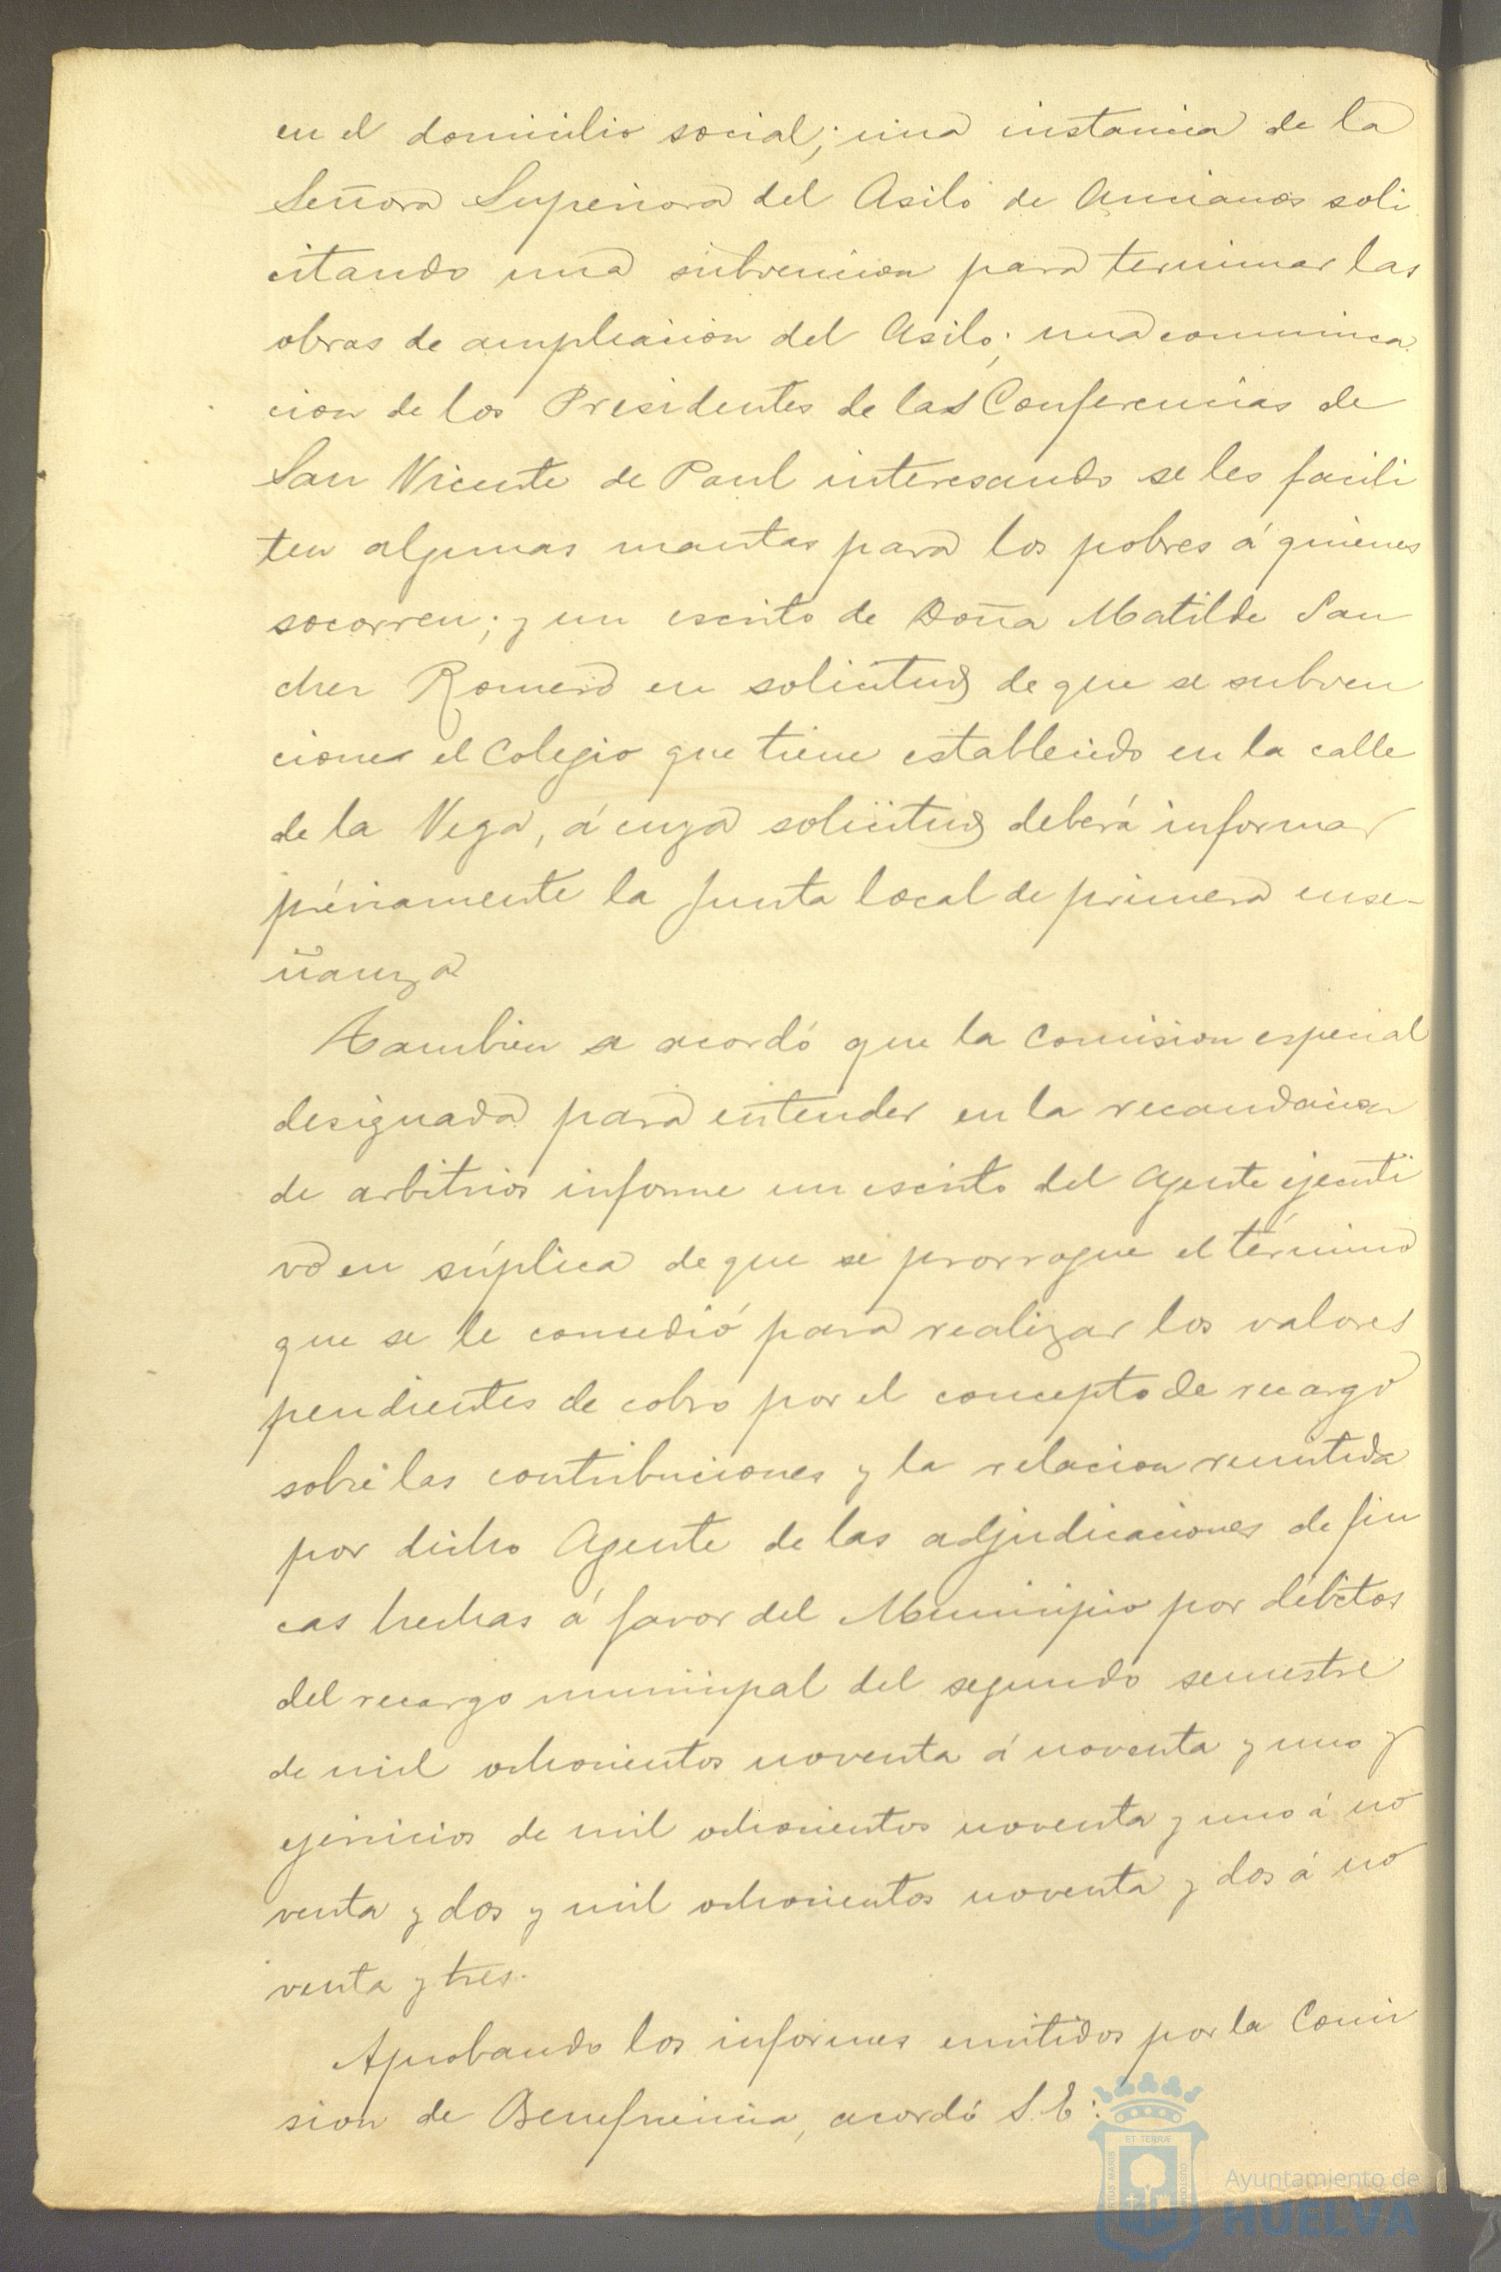 en el domicilio social; una instancia de la
Señora Superiora del Asilo de Ancianos soli
citando una subvencion para terminar las
obras de ampliacion del Asilo; una comunica
cion de los Presidentes de las Conferencias de
San Vicente de Paul interesando se les facili
ten algunas mantas para los pobres á quienes
socorren; y un escrito de Doña Matilde San
chez Romero en solicitud de que se subven
cione el Colegio que tiene establecido en la calle
de la Vega, á cuya solicitud deberá informar
préviamente la Junta local de primera ense-
ñanza
Tambien se acordó que la Comision especial
designada para entender en la recaudacion
de arbitrios informe un escrito del Agente ejecuti
vo en súplica de que se prorrogue el término
que se le concedió para realizar los valores
pendientes de cobro por el concepto de recargo
sobre las contribuciones y la relacion remitida
por dicho Agente de las adjudicaciones de fin
cas hechas á favor del Municipio por débitos
del recargo municipal del segundo semestre
de mil ochocientos noventa á noventa y uno y
ejercicios de mil ochocientos noventa y uno á no
venta y dos y mil ochocientos noventa y dos á no
venta y tres.
Aprobando los informes emitidos por la Comi
sion de Beneficencia, acordó S.E:
ET TERRÆ
PORTUS MARIS
CUSTODIA
Ayuntamiento de
HUELVA